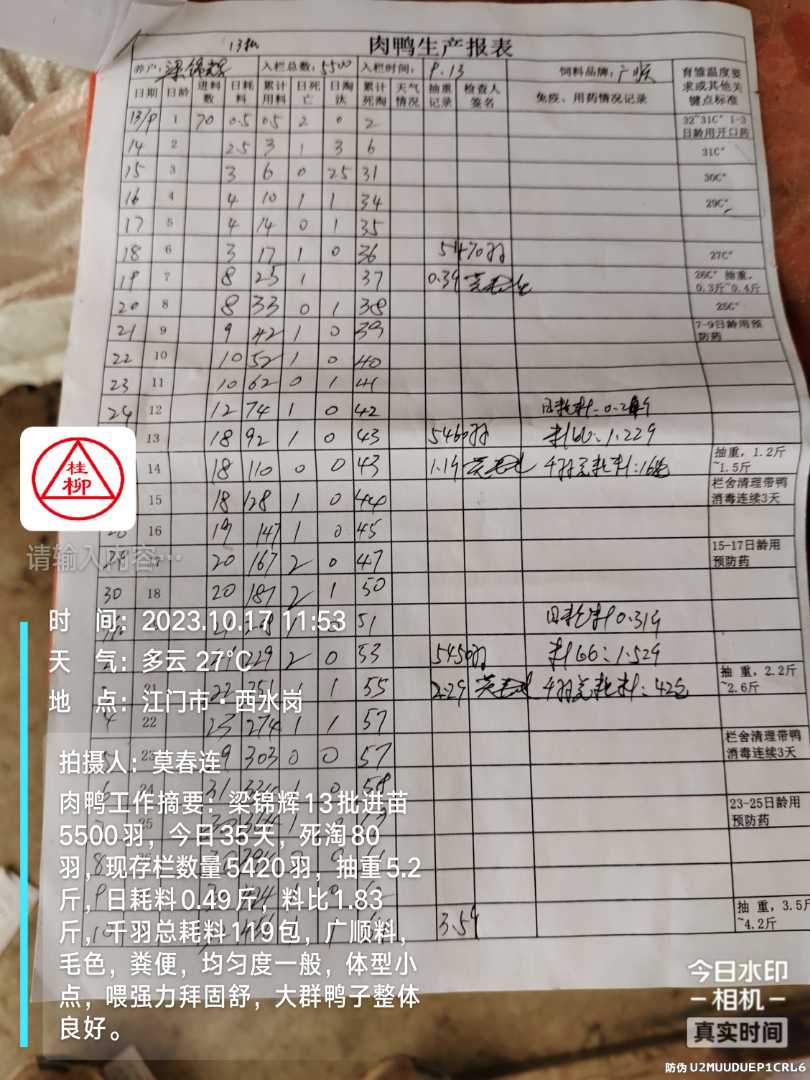 13批 肉鸭生产报表
养户:梁锦辉 入栏总数:5500 入栏时间:9.13 饲料品牌:广顺 育雏温度要求或其他关键点标准
日期 日龄 进料数 日耗料 累计用料 日死亡 日淘汰 累计死淘 天气情况 抽重记录 检查人签名 免疫、用药情况记录
13/9 1 70 0.5 0.5 2 0 2 32~31C° 1-3日龄用开口药
14 2 2.5 3 1 3 6 31C°
15 3 3 6 0 25 31 30C°
16 4 4 10 1 1 34 29C°
17 5 4 14 0 1 35
18 6 3 17 1 0 36 5470羽 27C°
19 7 8 25 1 37 0.39 26C° 抽重,0.3斤~0.4斤
20 8 8 33 0 1 38 25C°
21 9 9 42 1 0 39 7-9日龄用预防药
22 10 10 52 1 0 40
23 11 10 62 0 1 41
24 12 12 74 1 0 42 日耗料
13 18 92 1 0 43 5460羽 料比:1.229
14 18 110 0 0 43 1.19 千羽总耗料:16包 抽重,1.2斤~1.5斤
15 18 128 1 0 44 栏舍清理带鸭消毒连续3天
16 19 147 1 0 45
29 20 167 2 0 47 15-17日龄用预防药
30 18 20 187 2 1 50
51 日耗料0.319
229 2 0 53 5450羽 料比:1.529
21 22 251 1 1 55 2.29 千羽总耗料:42包 抽重,2.2斤~2.6斤
4 22 23 274 1 1 57
5 23 303 0 0 57 栏舍清理带鸭消毒连续3天
24 31 1 0 58
25 23-25日龄用预防药
3.59 抽重,3.5斤~4.2斤
桂柳
请输入内容…
时 间:2023.10.17 11:53
天 气:多云 27℃
地 点:江门市·西水岗
拍摄人:莫春连
肉鸭工作摘要:梁锦辉13批进苗
5500羽,今日35天,死淘80
羽,现存栏数量5420羽,抽重5.2
斤,日耗料0.49斤,料比1.83
斤,千羽总耗料119包,广顺料,
毛色,粪便,均匀度一般,体型小
点,喂强力拜固舒,大群鸭子整体
良好。
今日水印
相机
真实时间
防伪 U2MUUDUEP1CRL6